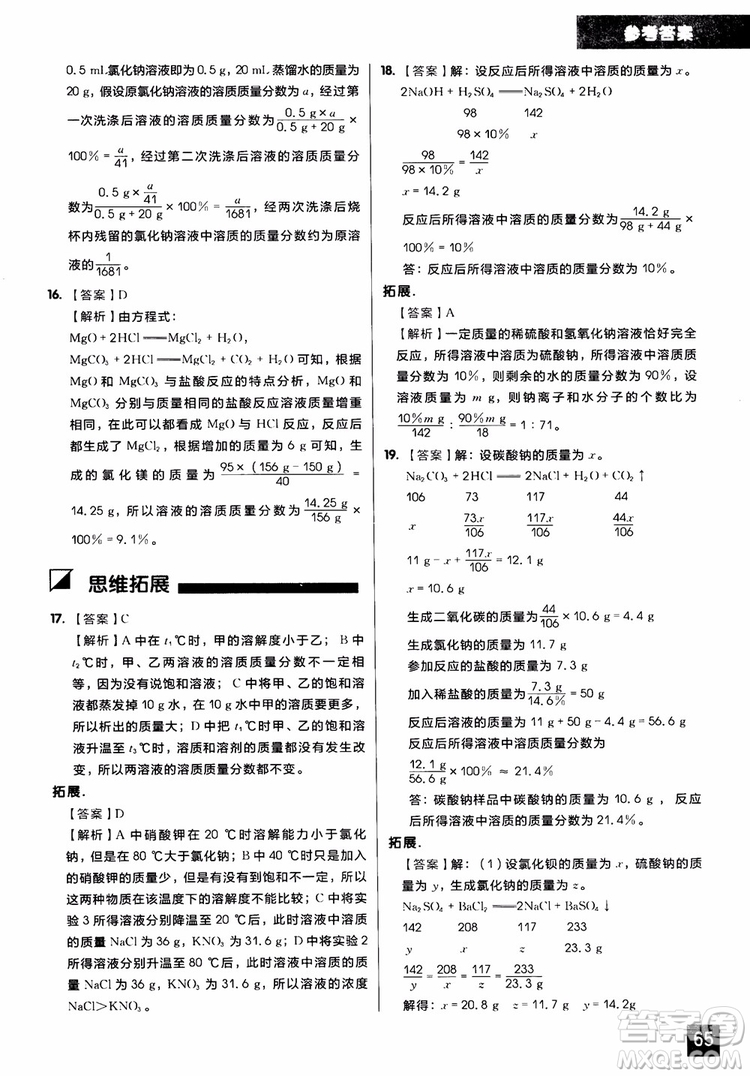 参考答案
0.5 mL氯化钠溶液即为0.5 g，20 mL蒸馏水的质量为
20 g，假设原氯化钠溶液的溶质质量分数为a，经过第
一次洗涤后溶液的溶质质量分数为 (0.5 g×a)/(0.5 g+20 g) ×
100%＝a/41，经过第二次洗涤后溶液的溶质质量分
数为 (0.5 g×a/41)/(0.5 g+20 g) ×100%＝a/1681，经两次洗涤后烧
杯内残留的氯化钠溶液中溶质的质量分数约为原溶
液的1/1681。
16. 【答案】D
【解析】由方程式：
MgO＋2HCl══MgCl₂＋H₂O，
MgCO₃＋2HCl══MgCl₂＋CO₂＋H₂O可知，根据
MgO和MgCO₃与盐酸反应的特点分析，MgO和
MgCO₃分别与质量相同的盐酸反应溶液质量增重
相同，在此可以都看成MgO与HCl反应，反应后
都生成了MgCl₂，溶液增加的质量为6 g可知，生
成的氯化镁的质量为 95×(156 g－150 g)/40 ＝
14.25 g，所以溶液的溶质质量分数为 14.25 g/156 g ×
100%＝9.1%。
思维拓展
17. 【答案】C
【解析】A中在t₁℃时，甲的溶解度小于乙；B中
t₂℃时，甲、乙两溶液的溶质质量分数不一定相
等，因为没有说饱和溶液；C中将甲、乙的饱和溶
液都蒸发掉10 g水，在10 g水中甲的溶质质量大，
所以析出的质量大；D中把t₁℃时甲、乙的饱和溶
液升温至t₃℃时，溶质和溶剂的质量都没有发生改
变，所以两溶液的溶质质量分数都不变。
拓展.
【答案】D
【解析】A中硝酸钾在20 ℃时溶解能力小于氯化
钠，但是在80 ℃大于氯化钠；B中实验1和2加入
的硝酸钾的质量少，还没有达到饱和状态，所以
这两种物质在该温度下的溶解度不能比较；C中将实
验3所得溶液分别降温至20 ℃后，此时溶液中溶质
的质量NaCl为36 g，KNO₃为31.6 g；D中将实验2
所得溶液分别升温至80 ℃后，此时溶液中溶质的质
量NaCl为36 g，KNO₃为31.6 g，所以溶液的浓度
NaCl＞KNO₃。
18. 【答案】解：设反应后所得溶液中溶质的质量为x。
2NaOH＋H₂SO₄══Na₂SO₄＋2H₂O
98 142
98×10% x
98/(98×10%)＝142/x
x＝14.2 g
反应后所得溶液中溶质的质量分数为 14.2 g/(98 g+44 g) ×
100%＝10%
答：反应后所得溶液中溶质的质量分数为10%。
拓展.
【答案】A
【解析】一定质量的稀硫酸和氢氧化钠溶液恰好完全
反应，所得溶液中溶质为硫酸钠，所得溶质质量分数
为10%，则剩余的水的质量分数为90%，设
溶液质量为m g，则钠离子和水分子的个数比为
10%m g/142：90%m g/18＝1：71。
19. 【答案】解：设碳酸钠的质量为x。
Na₂CO₃＋2HCl══2NaCl＋H₂O＋CO₂↑
106 73 117 44
x 73x/106 117x/106 44x/106
11 g－x＋117x/106＝12.1 g
x＝10.6 g
生成二氧化碳的质量为 44/106×10.6 g＝4.4 g
生成氯化钠的质量为11.7 g
参加反应的盐酸的质量为7.3 g
加入稀盐酸的质量为 7.3 g/14.6% ＝50 g
反应后溶液的质量为11 g＋50 g－4.4 g＝56.6 g
反应后所得溶液中溶质质量分数为
12.1 g/56.6 g×100%≈21.4%
答：碳酸钠样品中碳酸钠的质量为10.6 g，反应
后所得溶液中溶质的质量分数为21.4%。
拓展.
【答案】解：(1)设氯化钡的质量为x，硫酸钠的质
量为y，生成氯化钠的质量为z。
Na₂SO₄＋BaCl₂══2NaCl＋BaSO₄↓
142 208 117 233
y x z
142/y＝208/x＝117/z＝233/
解得：x＝20.8 g z＝11.7 g y＝14.2g
65
答案圈
MXQE.COM